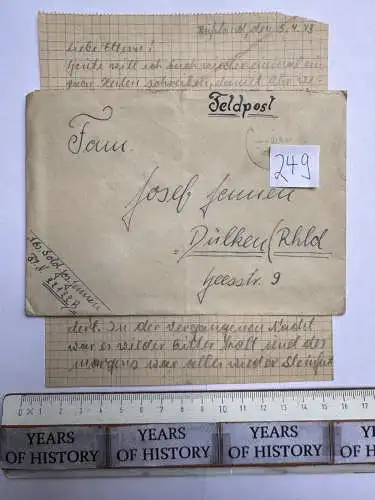 Rußland, den 5.4.43
Liebe Eltern!
Heute will ich Euch wieder einmal ein
paar Zeilen schreiben, damit Ihr
Feldpost
Fam.
249
Josef Jennen
Dülken/Rhld
Geesstr. 9
Abs. Sold. Jos. Jennen
dert. In der vergangenen Nacht
war es wieder bitter kalt und des
morgens war alles wieder
0 1 2 3 4 5 6 7 8 9 10 11 12 13 14 15 16 17
YEARS OF HISTORY
YEARS OF HISTORY
YEARS OF HISTORY
YEARS
OF HIST